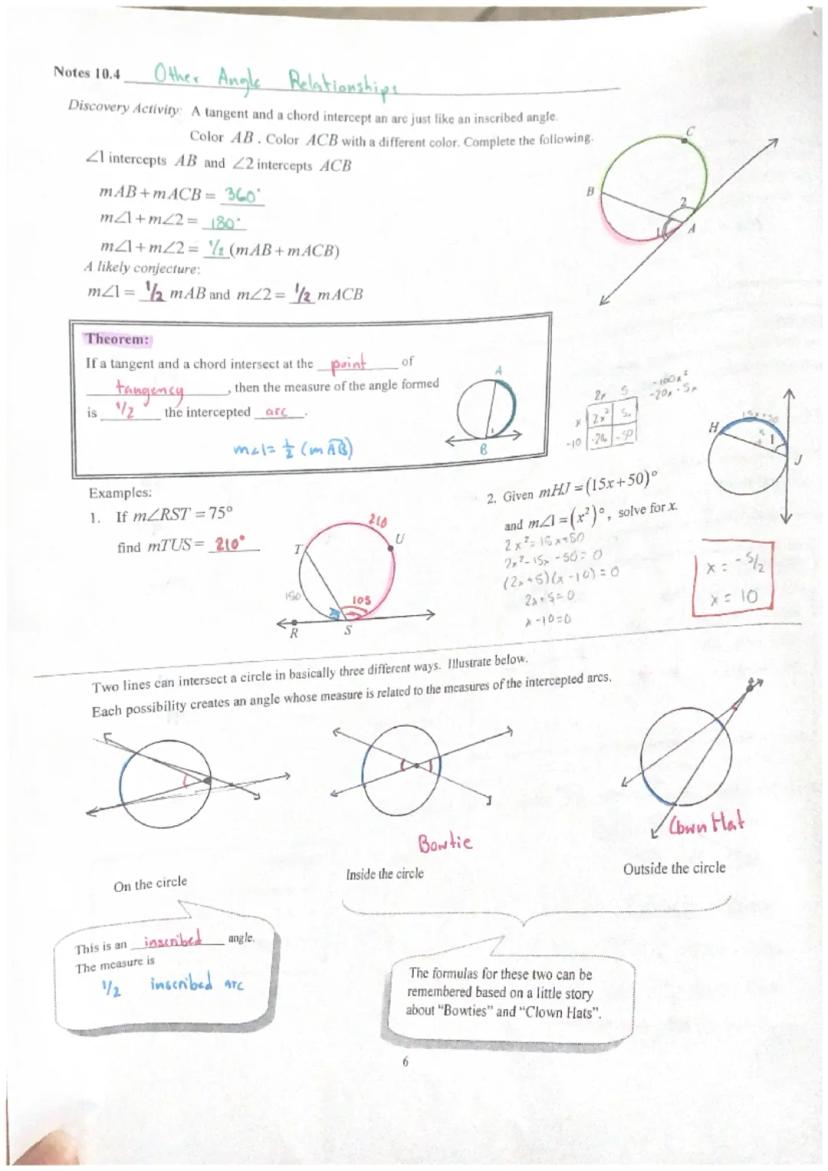 Notes 10.4 Other Angle Relationships
Discovery Activity: A tangent and a chord intercept an arc just like an inscribed angle.
Color AB . Color ACB with a different color. Complete the following.
∠1 intercepts AB and ∠2 intercepts ACB
mAB + mACB = 360°
m∠1 + m∠2 = 180°
m∠1 + m∠2 = 1/2 (mAB + mACB)
A likely conjecture:
m∠1 = 1/2 mAB and m∠2 = 1/2 mACB
C
B
2
1
A
Theorem:
If a tangent and a chord intersect at the point of
tangency, then the measure of the angle formed
is 1/2 the intercepted arc.
m∠1 = 1/2 (mAB)
A
1
B
2x 5
x 2x² 5x
-10 -20x -50
-100x²
-20x · 5x
15x+50
H
1
J
Examples:
1. If m∠RST = 75°
find mTUS = 210°
210
T
U
150
105
R
S
2. Given mHJ = (15x + 50)°
and m∠1 = (x²)°, solve for x.
2x² = 15x+50
2x² - 15x - 50 = 0
(2x + 5)(x - 10) = 0
2x + 5 = 0
x - 10 = 0
x = -5/2
x = 10
Two lines can intersect a circle in basically three different ways. Illustrate below.
Each possibility creates an angle whose measure is related to the measures of the intercepted arcs.
Bowtie
Clown Hat
On the circle
Inside the circle
Outside the circle
This is an inscribed angle.
The measure is
1/2 inscribed arc
The formulas for these two can be
remembered based on a little story
about “Bowties” and “Clown Hats”.
6